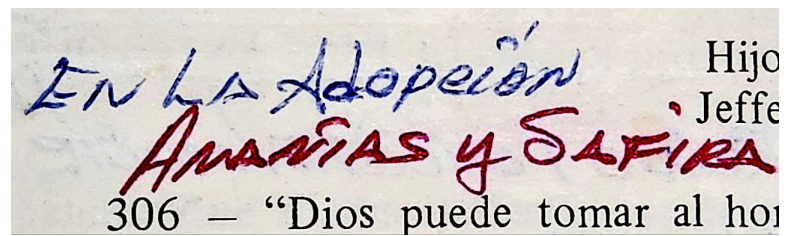 En La Adopción
Hijo
Jeffe
Ananías y Safira
306 – “Dios puede tomar al hor